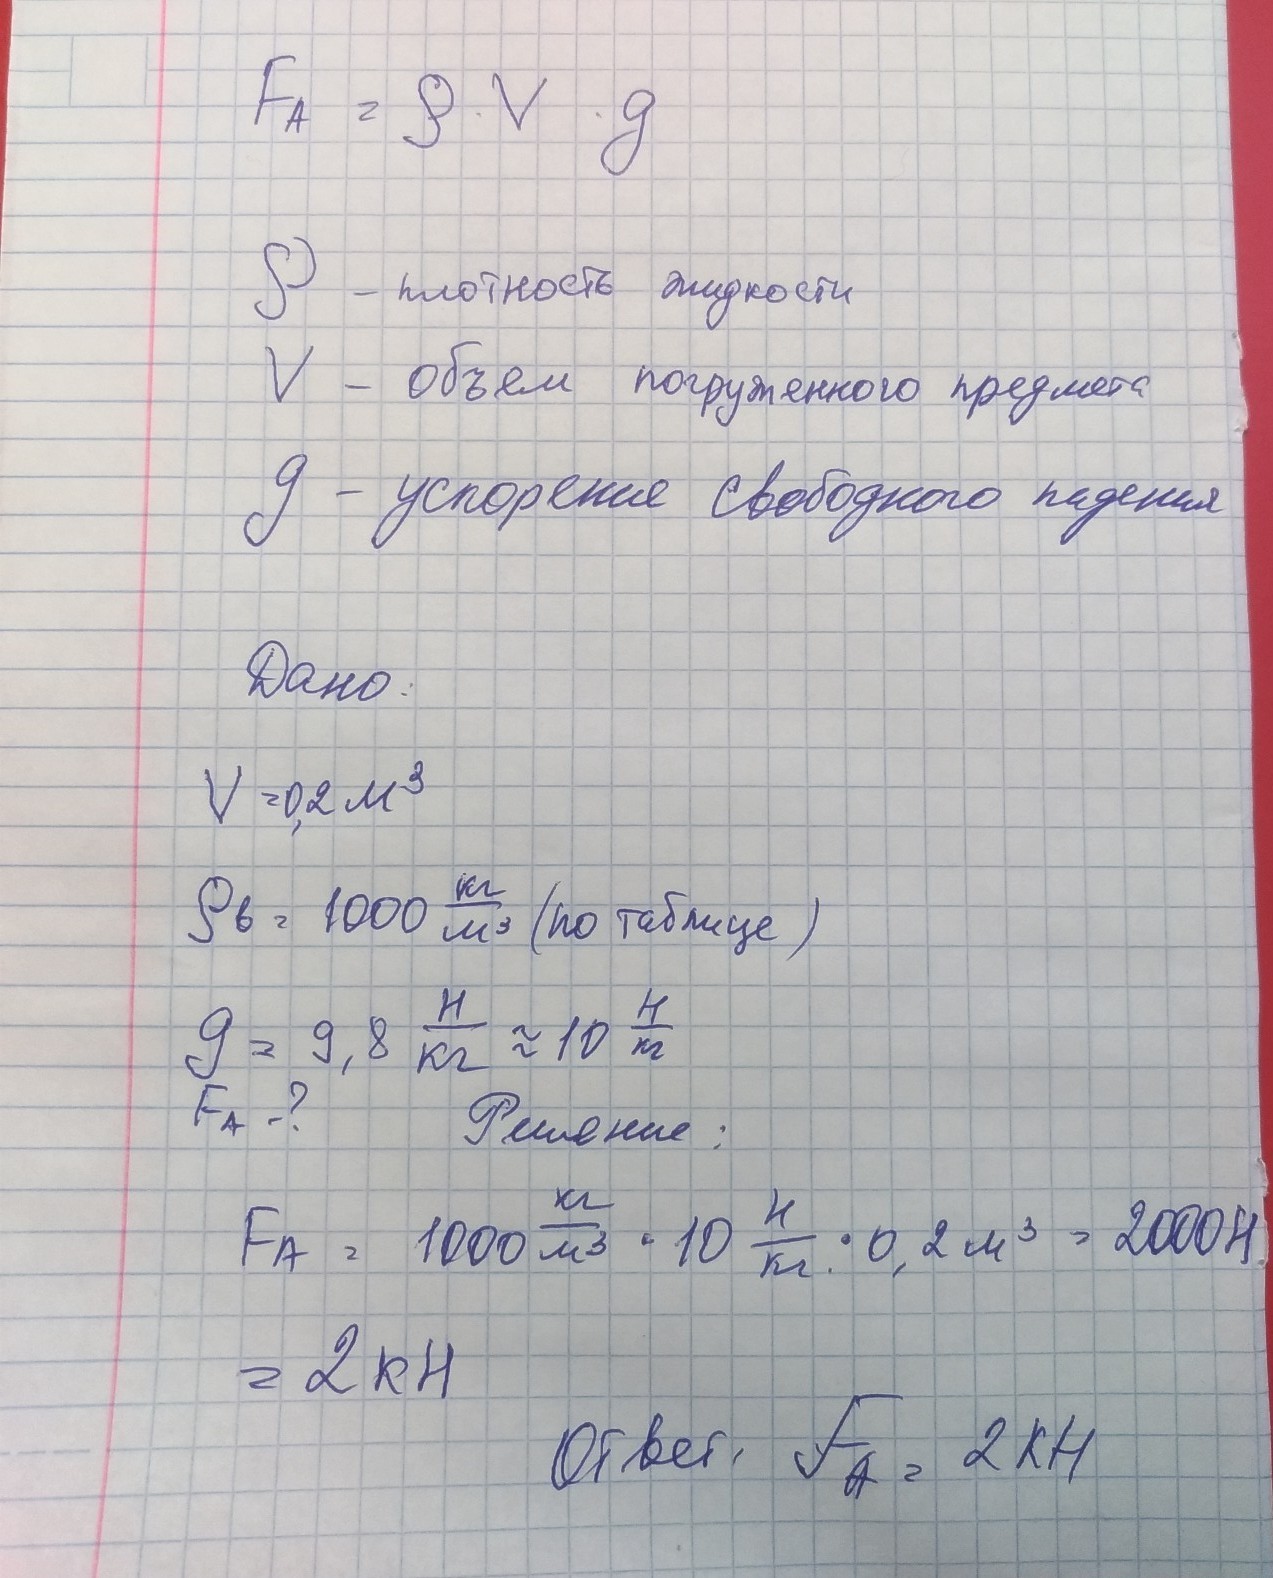 F_A = ρ · V · g
ρ – плотность жидкости
V – объем погруженного предмета
g – ускорение свободного падения
Дано:
V = 0,2 м³
ρв = 1000 кг/м³ (по таблице)
g = 9,8 Н/кг ≈ 10 Н/кг
F_A - ?
Решение:
F_A = 1000 кг/м³ · 10 Н/кг · 0,2 м³ = 2000 Н
= 2 кН
Ответ. F_A = 2 кН